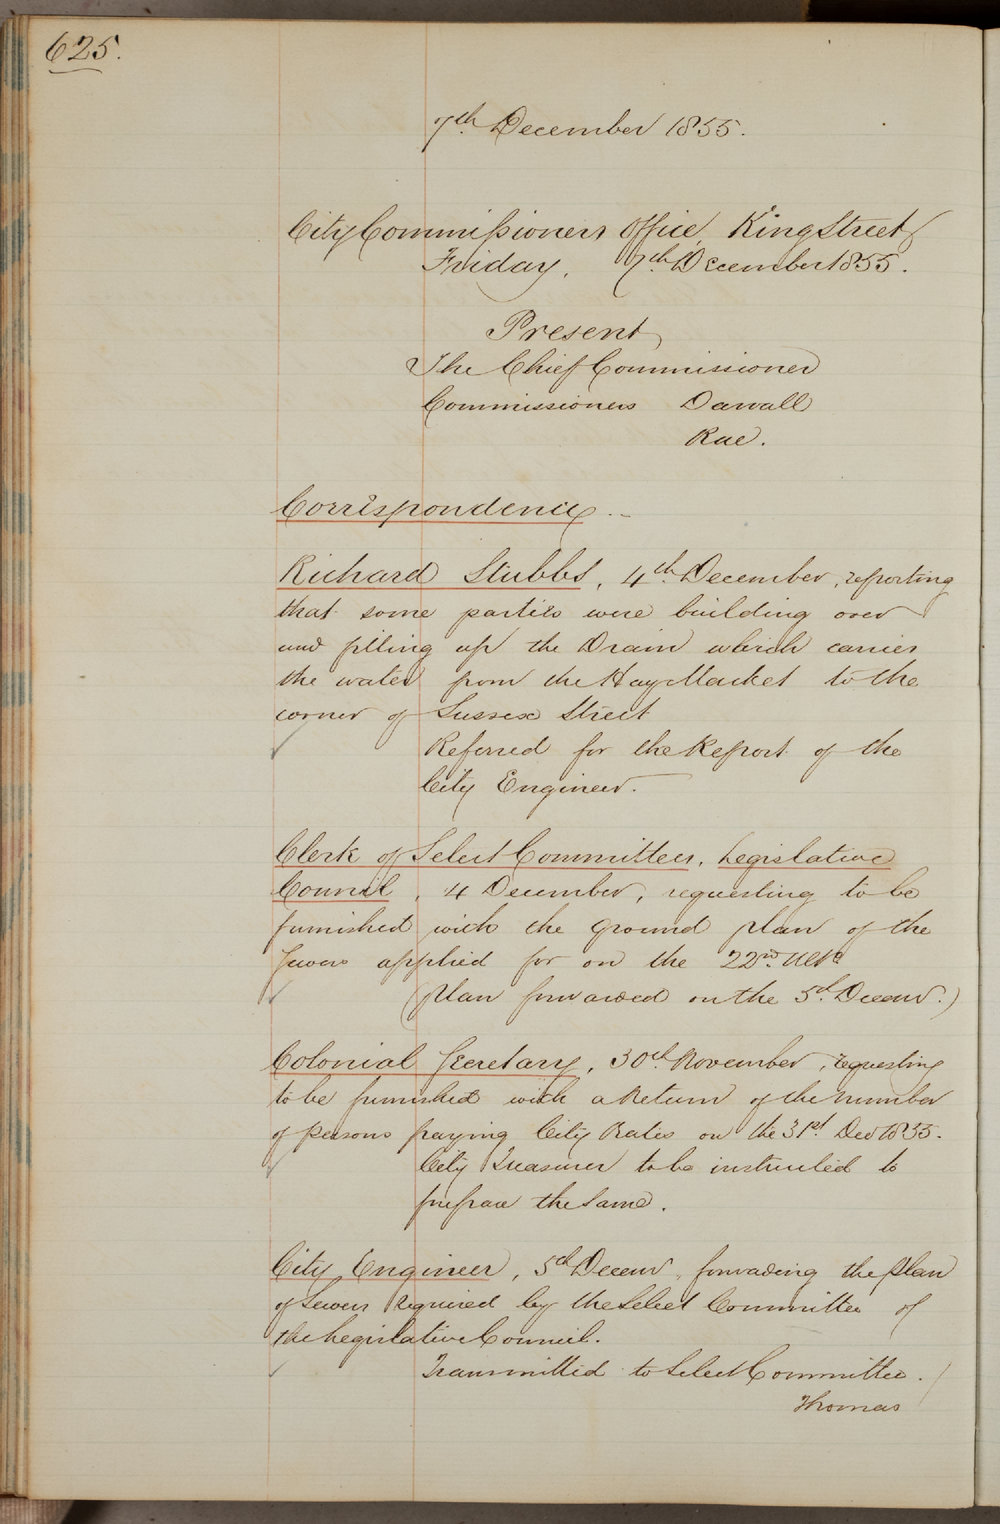 625.
7th December 1855.
City Commissioners Office, King Street,
Friday, 7th December 1855.
Present
The Chief Commissioner
Commissioners Darvall
Rae.
Correspondence
Richard Stubbs, 4th December, reporting
that some parties were building over
and filling up the Drain which carries
the water from the Hay Market to the
corner of Sussex Street
Referred for the Report of the
City Engineer.
Clerk of Select Committees, Legislative
Council, 4 December, requesting to be
furnished with the ground plan of the
Sewers applied for on the 22nd Ulto
(Plan forwarded on the 5th Decemr.)
Colonial Secretary, 30th November, requesting
to be furnished with a Return of the number
of persons paying City Rates on the 31st Dec 1855.
City Treasurer to be instructed to
prepare the same.
City Engineer, 5th Decemr, forwarding the plan
of Sewers required by the Select Committee of
the Legislative Council.
Transmitted to Select Committee.
Thomas